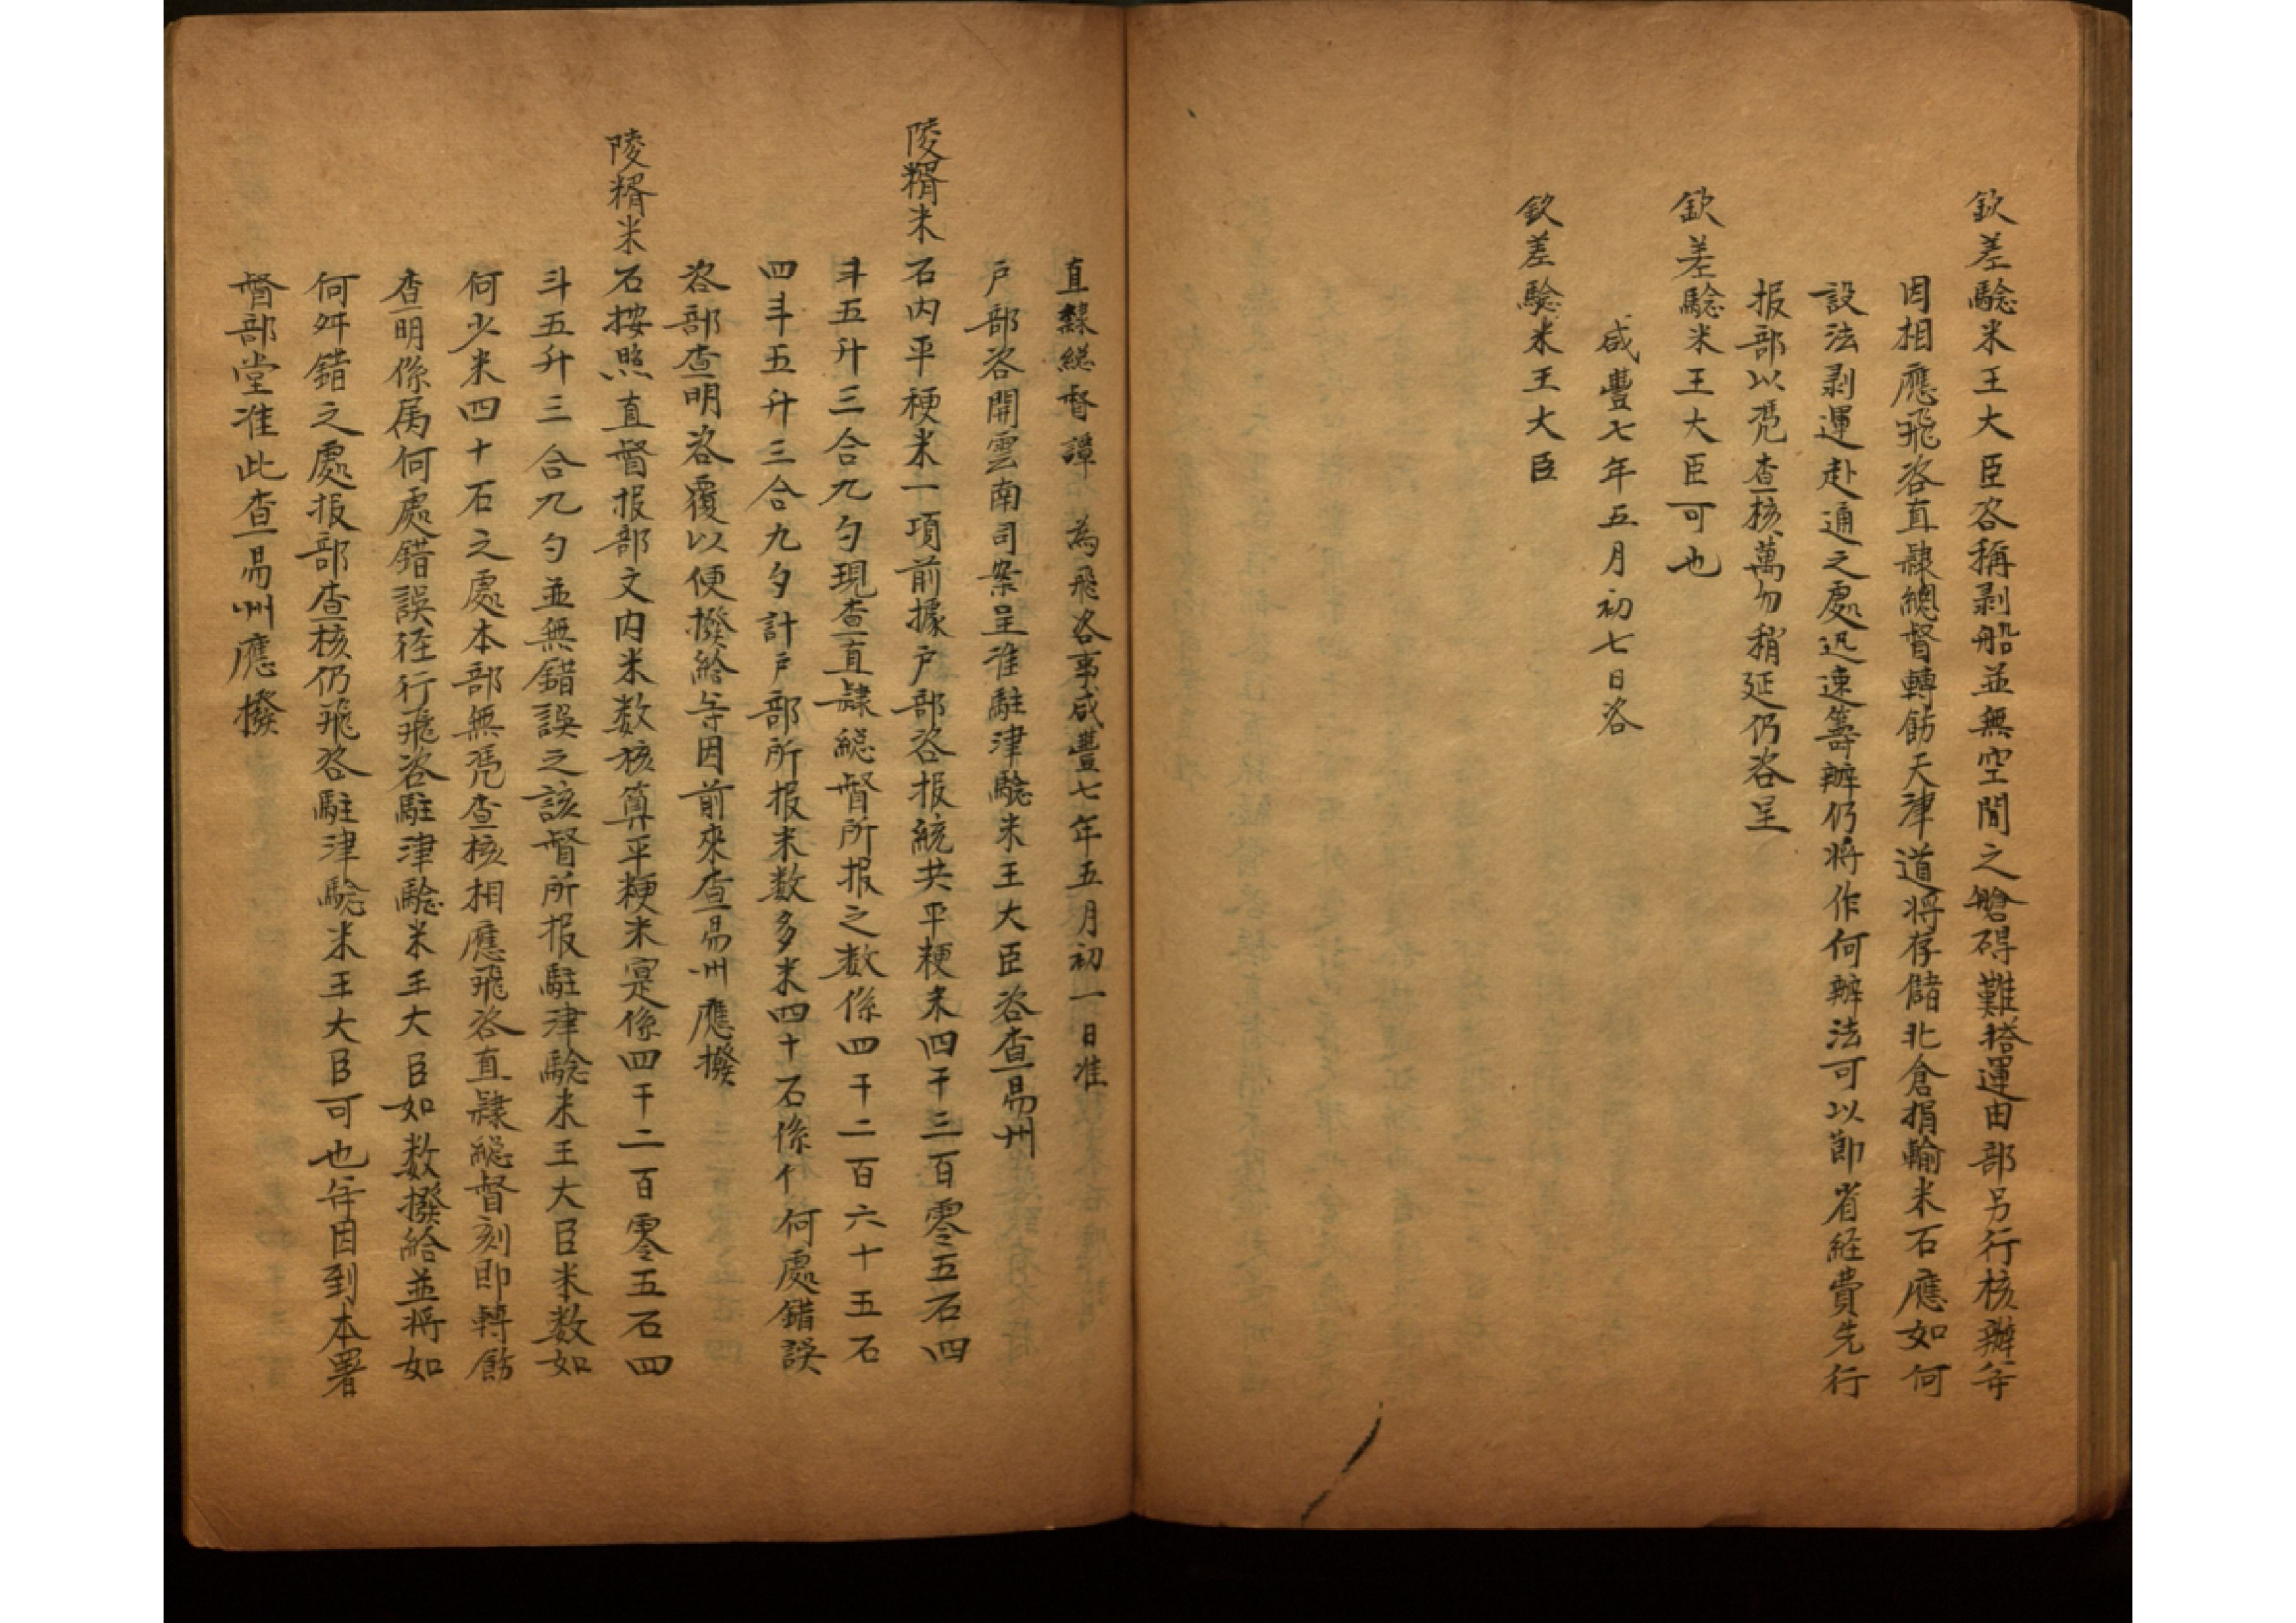 欽差驗米王大臣咨稱剥船並無空閒之艙碍難搭運由部另行核辦等
因相應飛咨直隸總督轉飭天津道將存儲北倉捐輸米石應如何
設法剥運赴通之處迅速籌辦仍將作何辦法可以節省経費先行
报部以凭查核萬勿稍延仍咨呈
欽差驗米王大臣可也
咸豐七年五月初七日咨
欽差驗米王大臣
直隸総督譚 為飛咨事咸豐七年五月初一日准
户部咨開雲南司案呈准駐津驗米王大臣咨查易州
陵糈米石内平粳米一項前據户部咨报統共平粳米四千三百零五石四
斗五升三合九勺現查直隸総督所报之数係四千二百六十五石
四斗五升三合九勺計户部所报米数多米四十石係何處錯誤
咨部查明咨覆以便撥給等因前來查易州應撥
陵糈米石按照直督报部文内米数核算平粳米寔係四千二百零五石四
斗五升三合九勺並無錯誤之該督所报駐津驗米王大臣米数如
何少米四十石之處本部無凭查核相應飛咨直隸総督刻即轉飭
查明係属何處錯誤径行飛咨駐津驗米王大臣如数撥給並将如
何舛錯之處报部查核仍飛咨駐津驗米王大臣可也等因到本署
督部堂准此查易州應撥